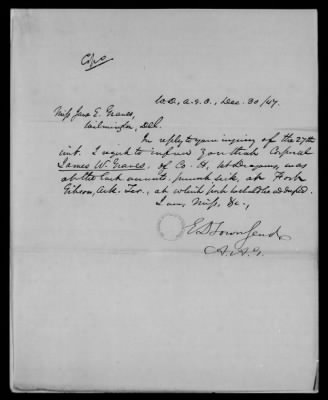 Copy
W.D., A.G.O., Dec. 30/47.
Miss Jane E. Graves,
Wilmington, Del.
In reply to your inquiry of the 27th
inst. I regret to inform you that Corporal
James W. Graves, of Co. H, 1st Dragoons, was
at the last accounts, sick, at Fort
Gibson, Ark. Ter., at which post he
I am, Miss, &c.,
E D Townsend
A.A.G.